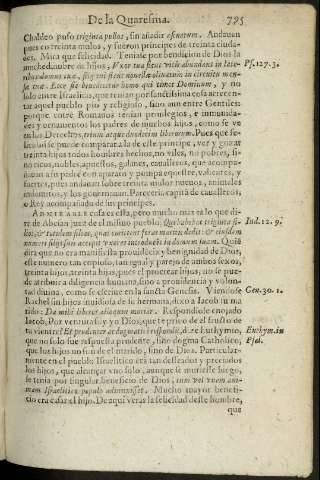 De la Quaresma. 795
Chaldeo puso triginta pullos, sin añadir asinarum. Andauan
pues con treinta mulos, y fueron principes de treinta ciuda-
des. Mira que felicidad. Teniase por bendicion de Dios la
muchedumbre de hijos, Vxor tua sicut vitis abundans in late- Ps.127.3.
ribus domus tuæ, filij tui sicut nouellæ oliuarum in circuitu men-
sæ tuæ. Ecce sic benedicetur homo qui timet Dominum, y no
solo entre Israelitas, que tenian por santissima cosa acrecen-
tar aquel pueblo pio y religioso, sino aun entre Gentiles
porque entre Romanos tenian priuilegios, e inmunida-
des y ornamentos los padres de muchos hijos, como se ve
en los Derechos, trium atque duodecim liberorum. Pues que fe-
licidad se puede comparar a la de este principe, ver y gozar
treinta hijos todos hombres hechos, no viles, no pobres, si-
no ricos, nobles, apuestos, galanes, caualleros, que acompa-
ñauan a su padre con aparato y pompa equestre, valientes, y
fuertes, pues andauan sobre treinta mulos nueuos, animales
indomitos, y los gouernauan. Pareceria capitã de caualleros,
o Rey acompañado de sus principes.
Admirable cosa es esta, pero mucho mas es lo que di-
ze de Abesan juez de el mismo pueblo. Qui habuit triginta fi- Iud.12.9.
lios, & totidem filias, quas emittens foras maritis dedit: & eiusdem
numeri filijs suis accepit vxores introducens in domum suam. Quiẽ
dira que no era manifiesta prouidẽcia y benignidad de Dios,
este numero tan copioso, tan igual y parejo de ambos sexos,
treinta hijos, treinta hijas, pues el procrear hijos, no se pue-
de atribuir a diligencia humana, sino a prouidencia y volun-
tad diuina, como se escriue en la santa Genesis. Viendose Gen.30.1.
Rachel sin hijos inuidiosa de su hermana, dixo a Iacob su ma
rido: Da mihi liberos alioquin moriar. Respondiole enojado
Iacob, Por ventura soy yo Dios, que te priuo de el fruto de
tu vientre? Et prudenter ac dogmaticè respondit, dize Euthymio, Euthym.in
que no solo fue respuesta prudente, sino dogma Catholico, Psal.
que los hijos no son de el marido, sino de Dios. Particular-
mente en el pueblo Israelitico eran tan desseados y preciados
los hijos, que alcançar vno solo, aunque se muriesse luego,
se tenia por singular beneficio de Dios,
Mucho mayor benefi-
cio era edar el hijo. De aqui veras la felicidad deste hombre,
que